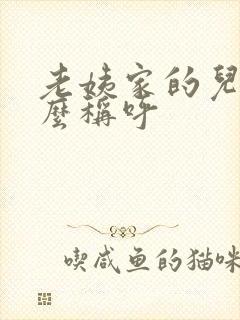 老姨家的兒
麼稱呼
喫咸鱼的猫咪